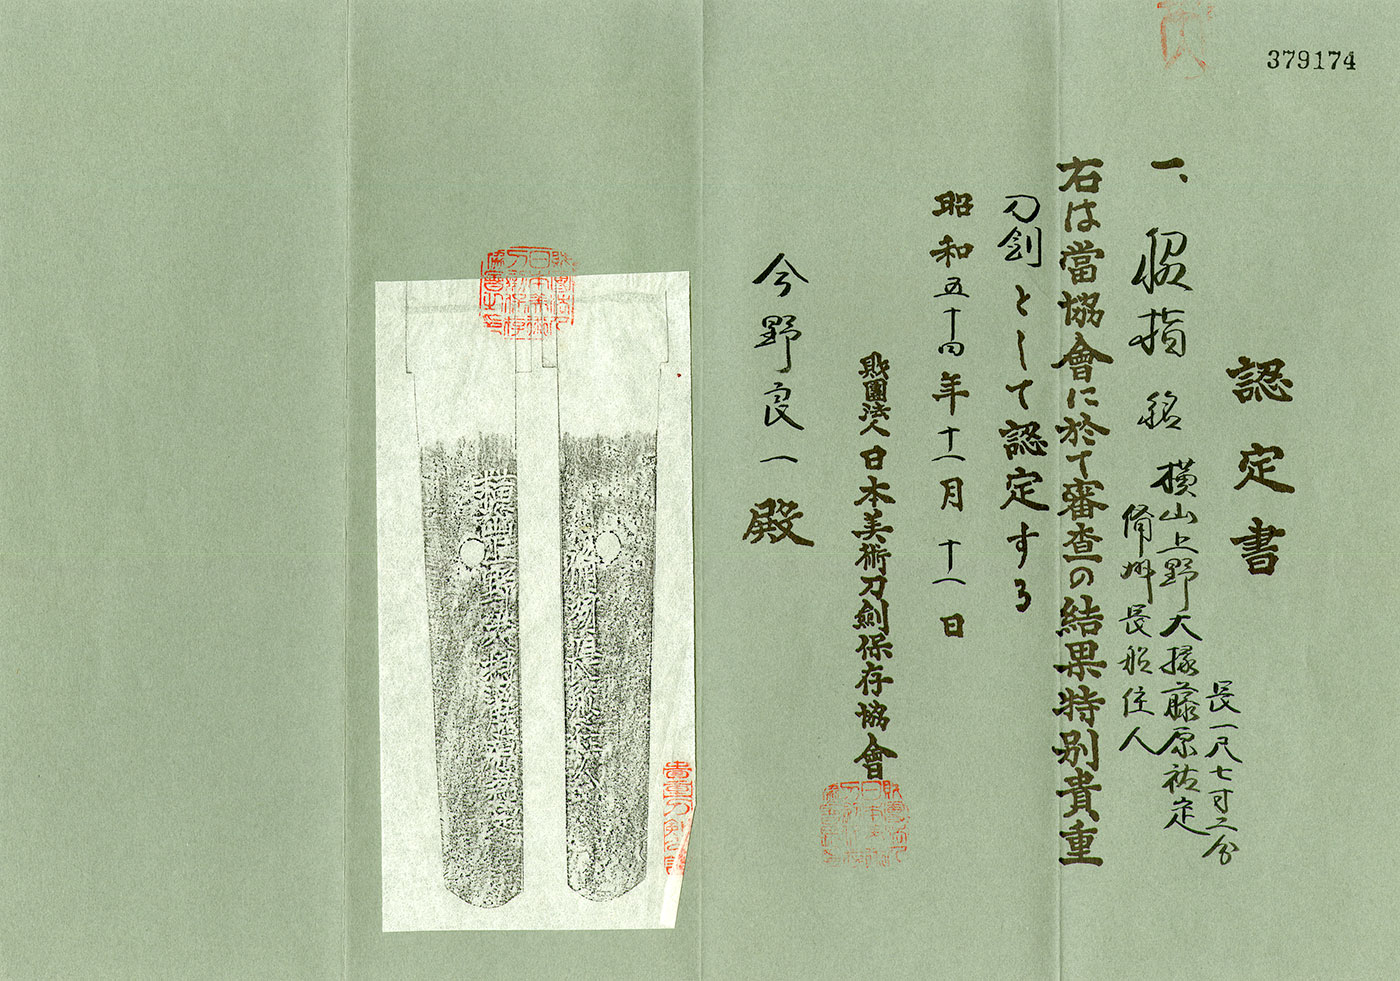 379174
認定書
一、脇指 銘 横山上野大掾藤原祐定
備州長船住人
長一尺七寸二分
右は當協會に於て審査の結果特別貴重
刀剣として認定する
昭和五十四年十一月十一日
財團法人日本美術刀劍保存協會
今野良一殿
横山上野大掾藤原祐定
備州長船住人
貴重刀剣之證